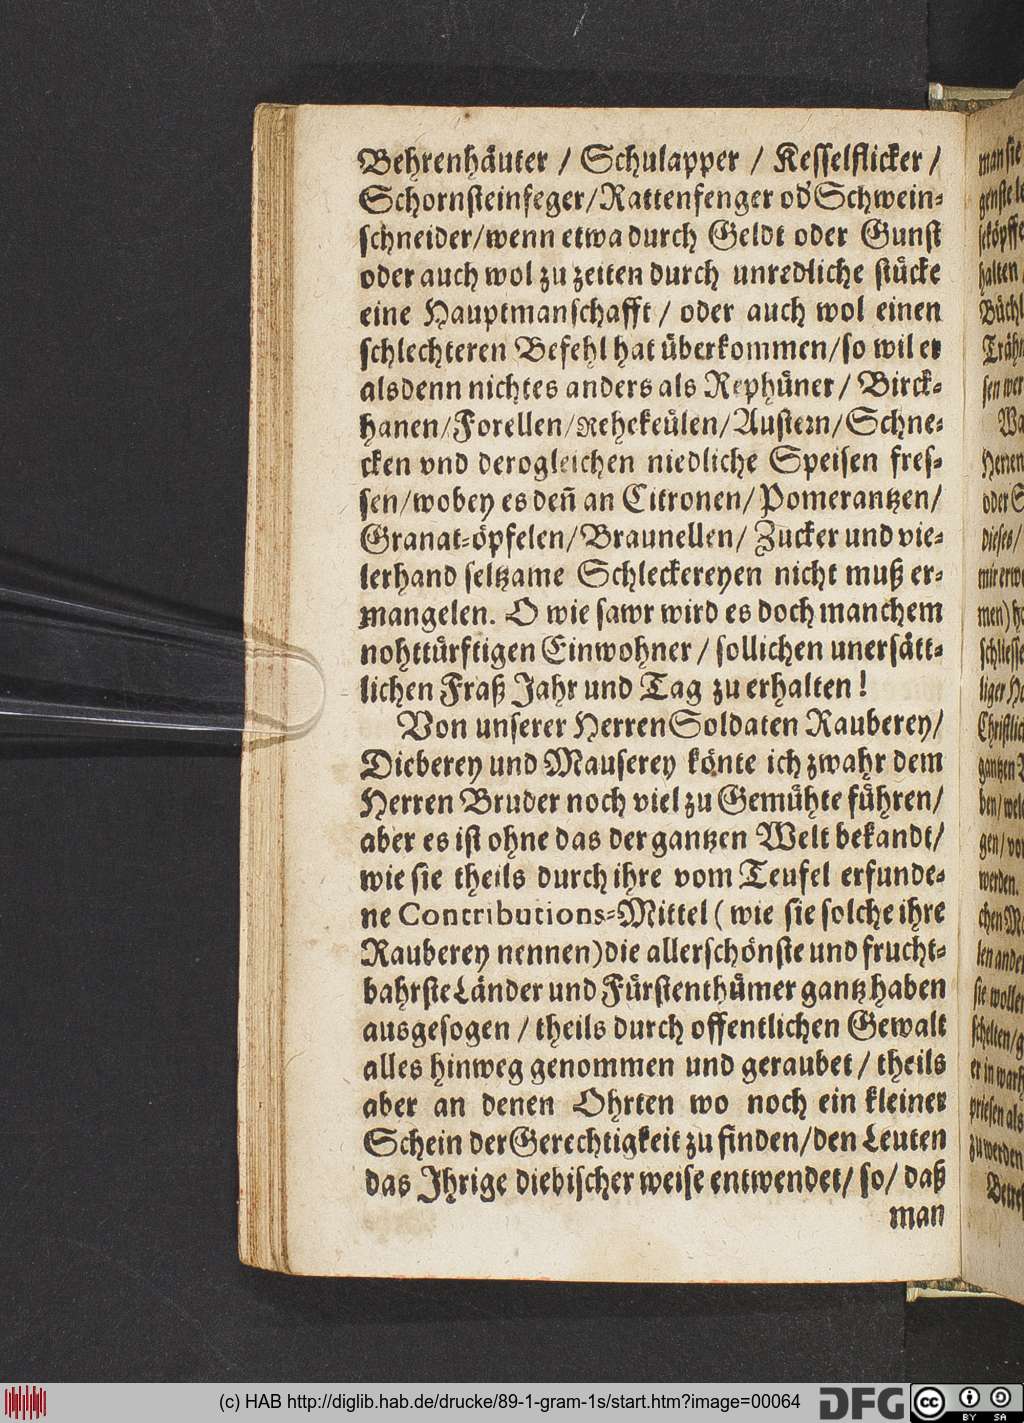 Behrenhäuter / Schulapper / Kesselflicker /
Schornsteinfeger/Rattenfenger od' Schwein-
schneider/wenn etwa durch Geldt oder Gunst
oder auch wol zu zeiten durch unredliche stücke
eine Hauptmanschafft / oder auch wol einen
schlechteren Befehl hat überkommen/so wil er
alsdenn nichtes anders als Rephüner/ Birck-
hanen/Forellen/Rehekeülen/Austern/Schne-
cken vnd derogleichen niedliche Speisen fres-
sen/wobey es deñ an Citronen/Pomerantzen/
Granat-öpfelen/Braunellen/ Zucker und vie-
lerhand seltzame Schleckereyen nicht muß er-
mangelen. O wie sawr wird es doch manchem
nohttürftigen Einwohner / sollichen unersätt-
lichen Fraß Jahr und Tag zu erhalten!
Von unserer Herren Soldaten Rauberey/
Dieberey und Mauserey könte ich zwahr dem
Herren Bruder noch viel zu Gemühte führen/
aber es ist ohne das der gantzen Welt bekandt/
wie sie theils durch ihre vom Teufel erfunde-
ne Contributions-Mittel ( wie sie solche ihre
Rauberey nennen)die allerschönste und frucht-
bahrste Länder und Fürstenthümer gantz haben
ausgesogen / theils durch offentlichen Gewalt
alles hinweg genommen und geraubet / theils
aber an denen Ohrten wo noch ein kleiner
Schein der Gerechtigkeit zu finden/den Leuten
das Ihrige diebischer weise entwendet/ so/ daß
man
man sie
halten
Herren
dieses/
werden.
zu werden
(c) HAB http://diglib.hab.de/drucke/89-1-gram-1s/start.htm?image=00064
DFG
cc
BY SA